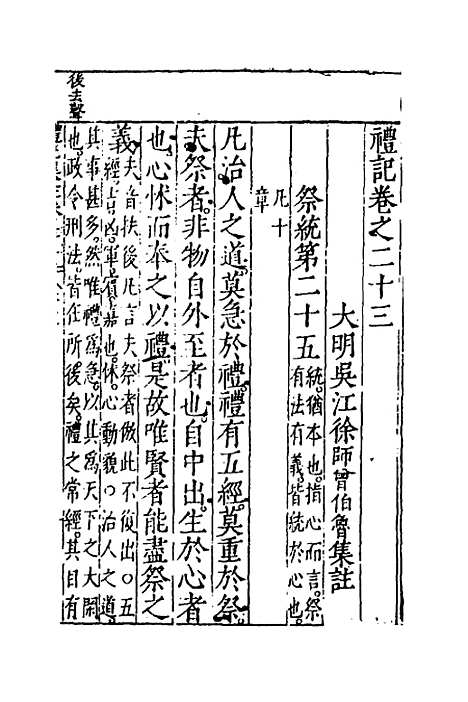 禮記卷之二十三
大明吳江徐師曾伯魯集註
祭統第二十五
統猶本也指心而言祭
有法有義皆統於心也
凡十
章
凡治人之道莫急於禮禮有五經莫重於祭
夫祭者非物自外至者也自中出生於心者
也心怵而奉之以禮是故唯賢者能盡祭之
義
夫音扶後凡言夫祭者倣此不復出○五
經吉凶軍賓嘉也怵心動貌○治人之道
其事甚多然唯禮爲急以其爲天下之大閑
也政令刑法皆在所後矣禮之常經其目有
後去聲